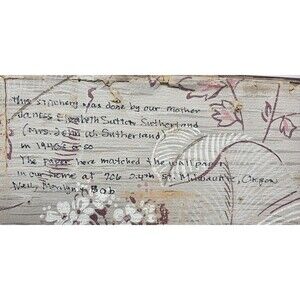 This stitchery was done by our mother
Elizabeth Sutton Sutherland
(Mrs. John W. Sutherland)
in 1940s or so
The paper here matched the wallpaper
in our home at St. Milwaukie, Oregon
Nelly, Marilyn & Bob